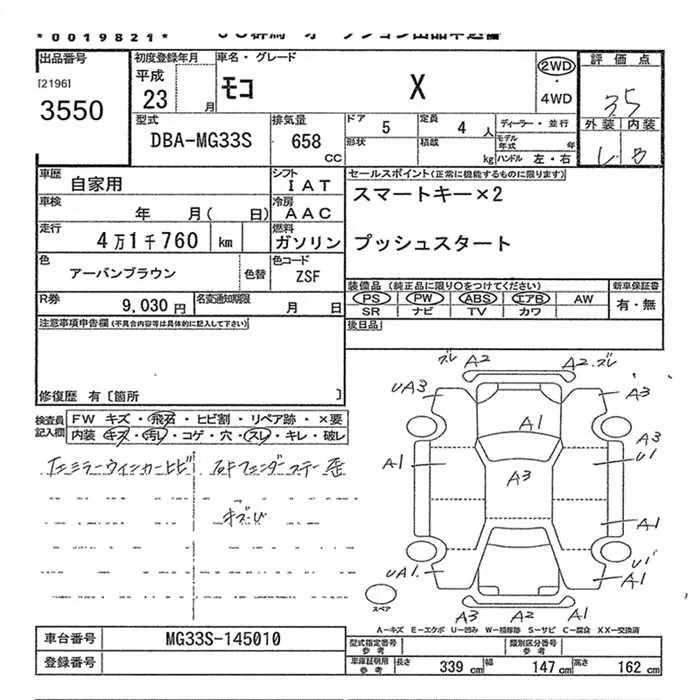 *0019821*
出品番号
[2196]
3550
初度登録年月
平成
23 月
車名・グレード
モコ X
2WD
・
4WD
評価点
3.5
外装 内装
型式
DBA-MG33S
排気量
658
CC
ドア 5
定員 4 人
ディーラー・並行
形状
積載 kg
モデル年式 年
ハンドル 左・右
車歴 自家用
シフト IAT
車検 年 月( 日)
冷房 AAC
走行 4万1千760 km
燃料 ガソリン
色 アーバンブラウン
色替
色コード ZSF
R券 9,030円
名変通知期限 月 日
セールスポイント(正常に機能するものに限ります)
スマートキー×2
プッシュスタート
装備品 (純正品に限り○をつけてください)
新車保証書
PS PW ABS エアB AW
有・無
SR ナビ TV カワ
後日品
注意事項申告欄(不具合内容等は具体的に記入して下さい)
修復歴 有〔箇所 〕
検査員記入欄
FW キズ・飛石・ヒビ割・リペア跡・×要
内装 キズ・汚レ・コゲ・穴・スレ・キレ・破レ
ズレ A2 A2.ズレ
UA3 A3
A1
A3
U1
A1 A3
A1
UA1. U1
A1
スペア
A3 A2 A1
A-キズ E-エクボ U-凹み W-補修跡 S-サビ C-腐食 XX-交換済
車台番号 MG33S-145010
登録番号
型式指定番号 参考
類別区分番号 参考
車庫証明用 参考
長さ 339 cm 幅 147 cm 高さ 162 cm